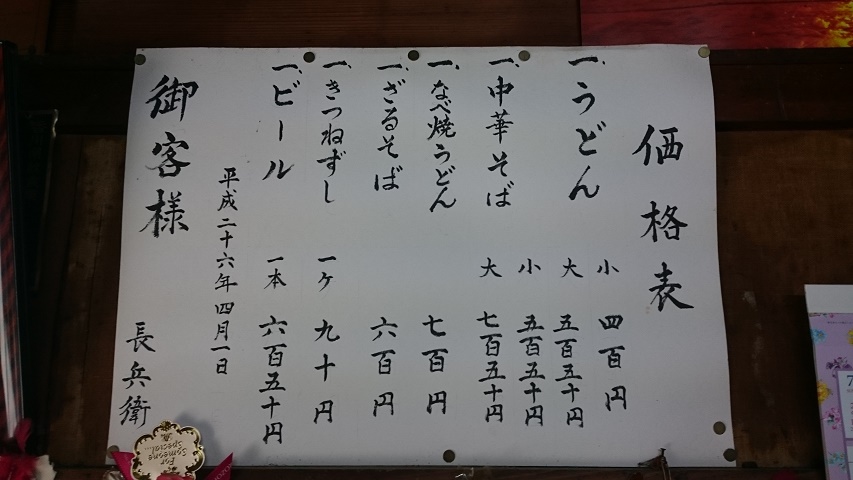 価格表
一、うどん 小 四百円
大 五百五十円
一、中華そば 小 五百五十円
大 七百五十円
一、なべ焼うどん 七百円
一、ざるそば 六百円
一、きつねずし 一ケ 九十円
一、ビール 一本 六百五十円
平成二十六年四月一日
御客様 長兵衛
For
Someone
Special...
7